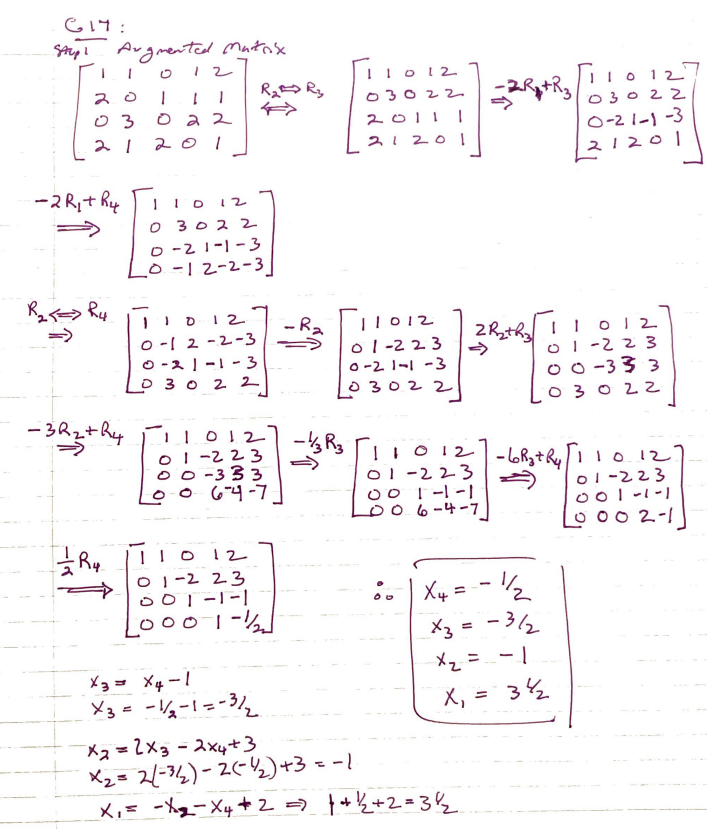 G17:
Step 1 Augmented Matrix
[1 1 0 1 2; 2 0 1 1 1; 0 3 0 2 2; 2 1 2 0 1] R₂⇔R₃ ⇔ [1 1 0 1 2; 0 3 0 2 2; 2 0 1 1 1; 2 1 2 0 1] -2R₁+R₃ ⇒ [1 1 0 1 2; 0 3 0 2 2; 0 -2 1 -1 -3; 2 1 2 0 1]
-2R₁+R₄ ⇒ [1 1 0 1 2; 0 3 0 2 2; 0 -2 1 -1 -3; 0 -1 2 -2 -3]
R₂⇔R₄ ⇒ [1 1 0 1 2; 0 -1 2 -2 -3; 0 -2 1 -1 -3; 0 3 0 2 2] -R₂ ⇒ [1 1 0 1 2; 0 1 -2 2 3; 0 -2 1 -1 -3; 0 3 0 2 2] 2R₂+R₃ ⇒ [1 1 0 1 2; 0 1 -2 2 3; 0 0 -3 3 3; 0 3 0 2 2]
-3R₂+R₄ ⇒ [1 1 0 1 2; 0 1 -2 2 3; 0 0 -3 3 3; 0 0 6 -4 -7] -⅓R₃ ⇒ [1 1 0 1 2; 0 1 -2 2 3; 0 0 1 -1 -1; 0 0 6 -4 -7] -6R₃+R₄ ⇒ [1 1 0 1 2; 0 1 -2 2 3; 0 0 1 -1 -1; 0 0 0 2 -1]
½R₄ ⇒ [1 1 0 1 2; 0 1 -2 2 3; 0 0 1 -1 -1; 0 0 0 1 -1/2]
∴ x₄ = -1/2
x₃ = -3/2
x₂ = -1
x₁ = 3 1/2
x₃ = x₄ - 1
x₃ = -1/2 - 1 = -3/2
x₂ = 2x₃ - 2x₄ + 3
x₂ = 2(-3/2) - 2(-1/2) + 3 = -1
x₁ = -x₂ - x₄ + 2 ⇒ 1 + 1/2 + 2 = 3 1/2